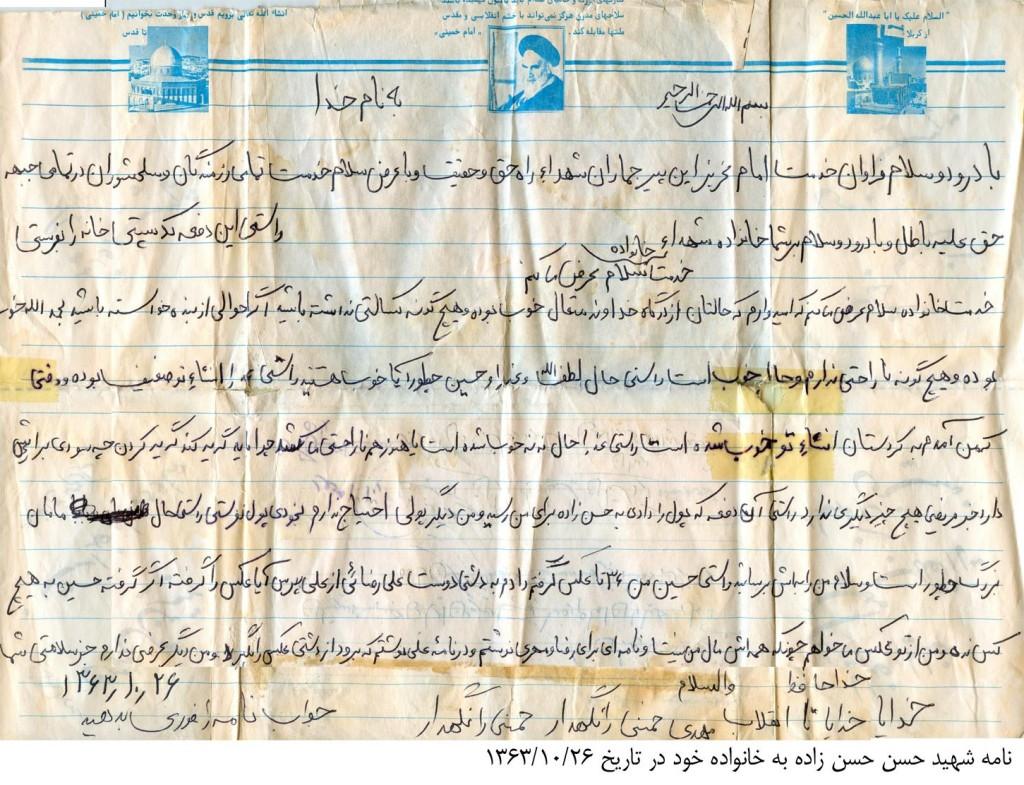 "السلام علیک یا ابا عبدالله الحسین"
از کربلا
سلاحهای مدرن هرگز نمی‌تواند با خشم انقلابی و مقدس
ملتها مقابله کند. "امام خمینی"
انشاء الله تعالی برویم قدس و نماز وحدت بخوانیم (امام خمینی)
تا قدس
بسم الله الرحمن الرحیم به نام خدا
با درود و سلام فراوان خدمت امام عزیز این پیر جماران شهداء راه حق و حقیقت و با عرض سلام خدمت تمامی رزمندگان و سلحشوران در تمامی جبهه
حق علیه باطل و با درود و سلام بر شما خانواده شهداء راستی این دفعه کد پستی خانه را نوشتی
خدمت خانواده سلام عرض ما کنم
خدمت خانواده سلام عرض ما کنم که امیدوارم که حالتان از درگاه خداوند متعال خوب بوده و هیچ گونه کسالتی نداشته باشید اگر احوالی از بنده خواسته باشید بحمد الله خوب
بوده و هیچ گونه ناراحتی ندارم و حالم خوب است راستی حال لطف الله و عذرا و حسین چطور آیا خوب هستند راستی عذرا انشاء تو ضعیف بوده و وقتی
که من آمدم به کردستان انشاء تو خوب شده است راستی عذرا حال ننه خوب شده است یا هنوز هم ناراحتی ما کشد چرا باید گریه کند گریه کردن چه سودی برایش
دارد جز مریضی هیچ چیز دیگری ندارد راستی آن دفعه که پول را دادی به حسن زاده برای من رسید و من دیگر پولی احتیاج ندارم بخودی پول نفرستی راستی حال مامان
بزرگ چطور است و سلام من را بهش برسانید راستی حسین من ۳۶ تا عکس گرفته دادم به دشتی دوست علی رضائی از علی بپرس آیا عکس را گرفته اگر گرفته حسین به هیچ
کس نده و من از تو عکس ما خواهم چونکه همه اش مال من نیست و نامه ای برای رضا موسوی نوشتم و در نامه علی نوشتم که برود از دشتی عکس را بگیرد و من دیگر عرضی ندارم جز سلامتی شما
خداحافظ والسلام ۱۳۶۳/۱۰/۲۶
خدایا خدایا تا انقلاب مهدی خمینی را نگهدار خمینی را نگهدار جواب نامه را فوری بدهید
نامه شهید حسن حسن زاده به خانواده خود در تاریخ ۱۳۶۳/۱۰/۲۶